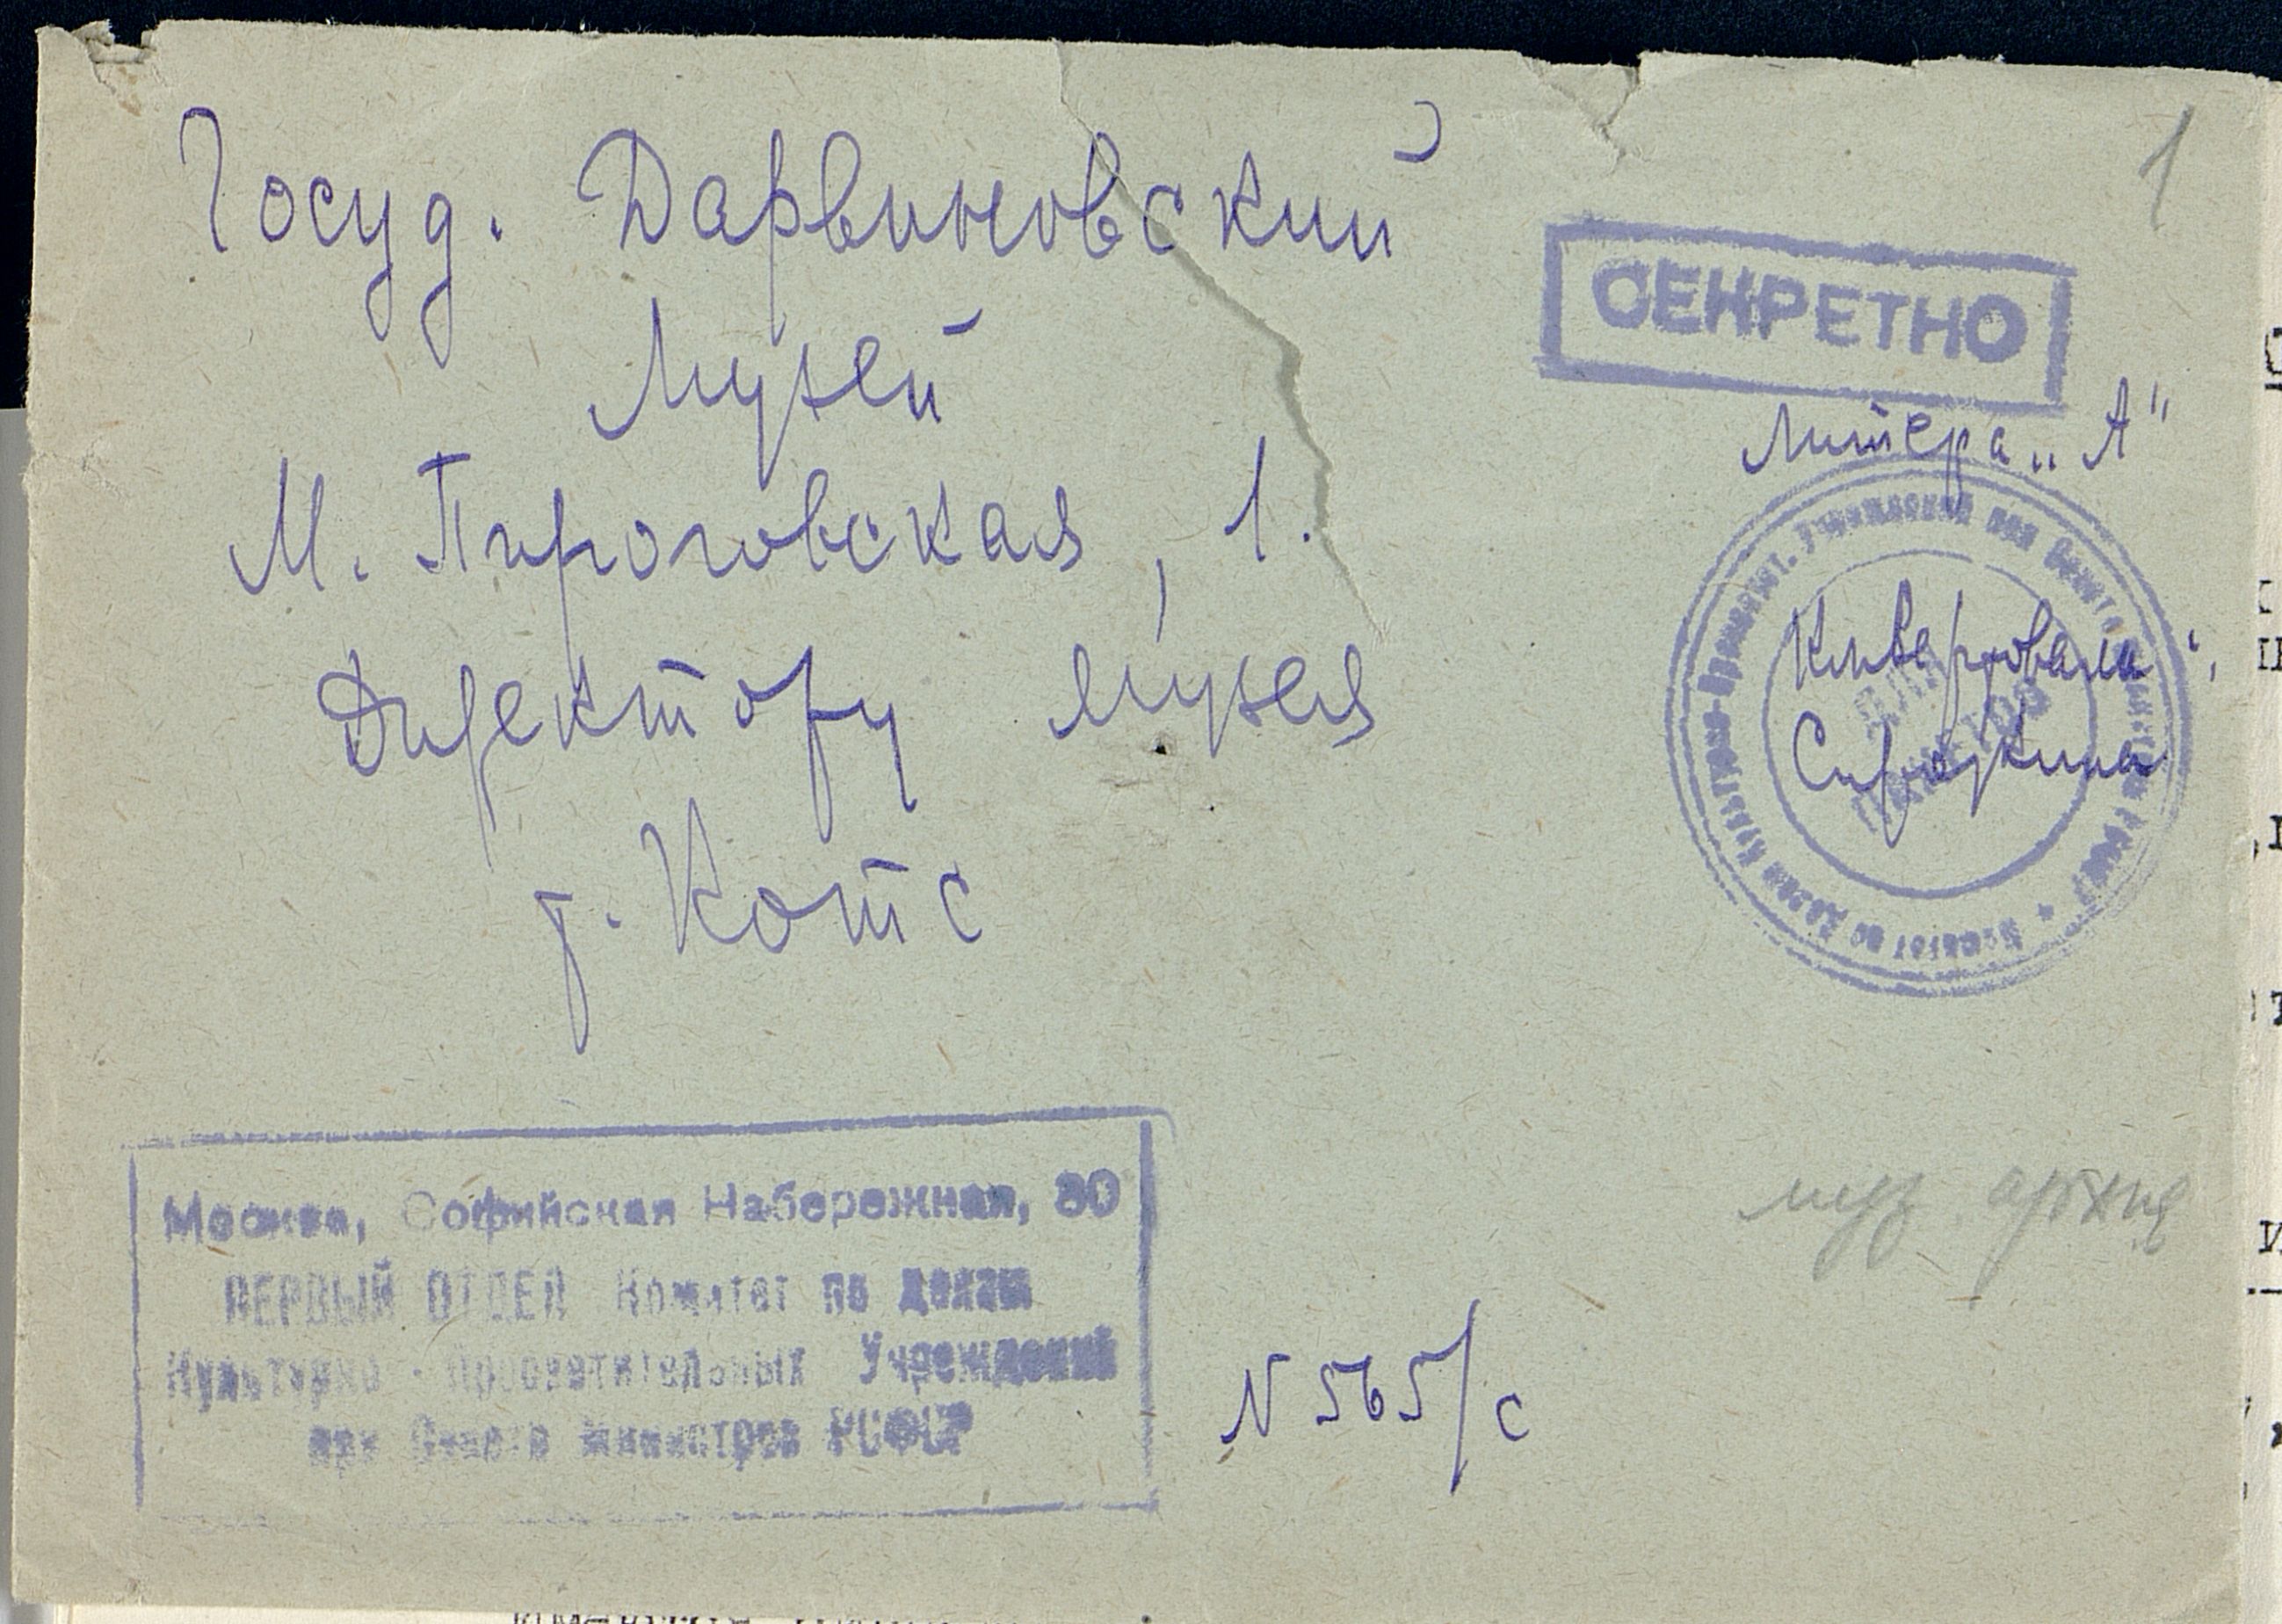 1
Госуд. Дарвиновский
Музей
М. Пироговская, 1.
Директору музея
т. Котс
СЕКРЕТНО
Литера „А"
Комитет по Делам Культурно-Просветит. Учреждений при Совете Министров РСФСР
Для пакетов
Сироткина
Москва, Софийская Набережная, 30
ПЕРВЫЙ ОТДЕЛ Комитет по делам
Культурно - Просветительных Учреждений
при Совете Министров РСФСР
муз архив
N 565/с